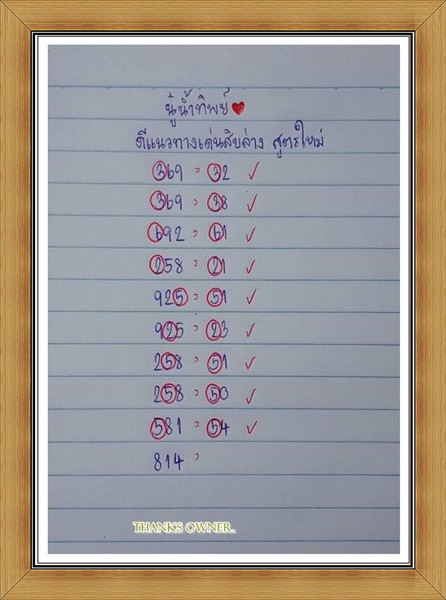 นู๋น้ำทิพย์❤
ตีแนวทางเด่นสิบล่าง สูตรใหม่
369 = 32 ✓
369 = 38 ✓
692 = 61 ✓
258 = 21 ✓
925 = 51 ✓
925 = 23 ✓
258 = 51 ✓
258 = 50 ✓
581 = 54 ✓
814 =
THANKS OWNER..